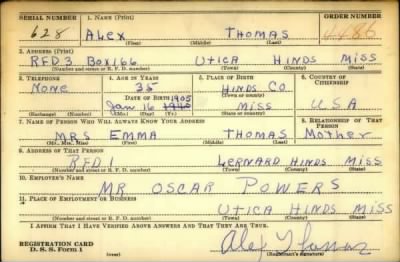 SERIAL NUMBER 1. NAME (Print) ORDER NUMBER
628 ALEX THOMAS 4486
(First) (Middle) (Last)
2. ADDRESS (Print)
RFD 3 BOX 166 UTICA HINDS MISS
(Number and street or R. F. D. number) (Town) (County) (State)
3. TELEPHONE 4. AGE IN YEARS 5. PLACE OF BIRTH 6. COUNTRY OF CITIZENSHIP
NONE 35 HINDS CO.
DATE OF BIRTH 1905 (Town or county)
JAN 16 1940 MISS USA
(Exchange) (Number) (Mo.) (Day) (Yr.) (State or country)
7. NAME OF PERSON WHO WILL ALWAYS KNOW YOUR ADDRESS 8. RELATIONSHIP OF THAT PERSON
MRS EMMA THOMAS Mother
(Mr., Mrs., Miss) (First) (Middle) (Last)
9. ADDRESS OF THAT PERSON
RFD 1 LERNARD HINDS MISS
(Number and street or R. F. D. number) (Town) (County) (State)
10. EMPLOYER'S NAME
MR OSCAR POWERS
11. PLACE OF EMPLOYMENT OR BUSINESS
UTICA HINDS MISS
(Number and street or R. F. D. number) (Town) (County) (State)
I AFFIRM THAT I HAVE VERIFIED ABOVE ANSWERS AND THAT THEY ARE TRUE.
REGISTRATION CARD
D. S. S. Form 1 Alex Thomas
(Registrant's signature)